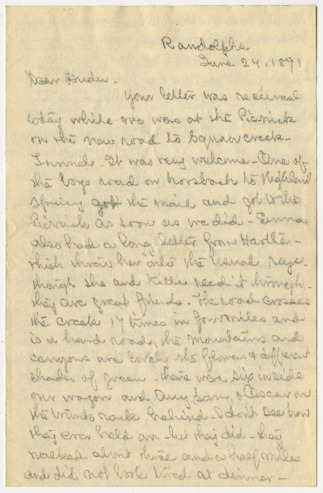 Randolphs.
June 24, 1891
Dear
Your letter was received
today while we were at the Picnick
on the new road to Squaw Creek-
Tunnel - It was very welcome - One of
the boys road on horsback to Highland
Spring got the mail and got to the
Picnick as soon as we did - Emma
also had a long letter from Hattie -
which threw her into the usual rage.
though she and Kittie read it through -
they are great friends - The road crosses
the creek 17 times in four miles and
is a hard road, the mountains and
canyons are the different
shades of green - there were six inside
our wagon and Amy Sam, & Oscar on
the trunk rack behind - I dont see how
they ever held on - but they did - they
walked about three and a half miles
and did not look tired at dinner -